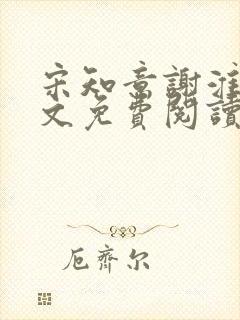 宋知意謝淮
文免費閱讀
厄齊尔